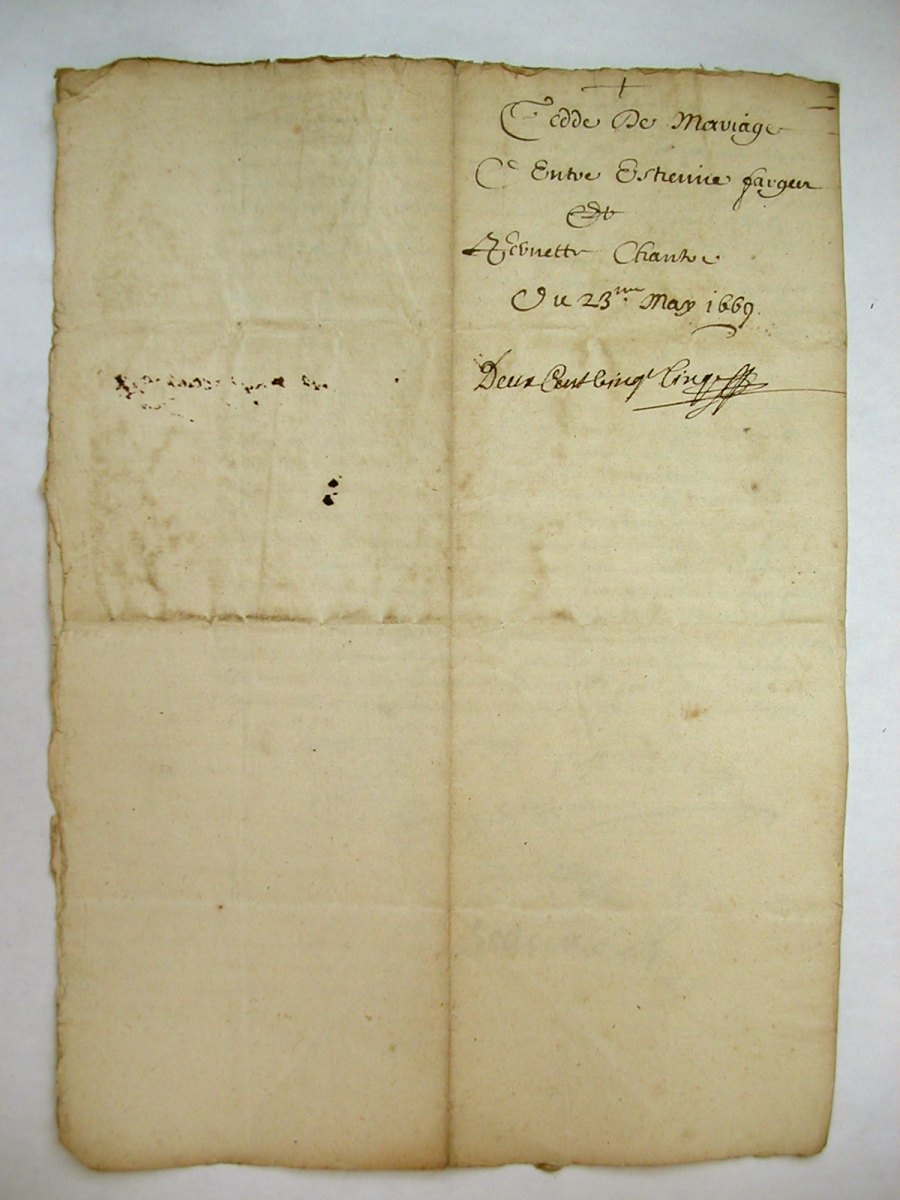 Cedde De Mariage
Entre Estienne fargeu
Et
Chantre
Du 23me May 1669.
Deux Cent Cinqt Cinq